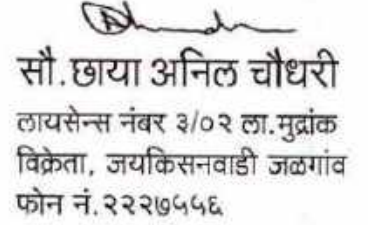 सौ.छाया अनिल चौधरी
लायसेन्स नंबर ३/०२ ला.मुद्रांक
विक्रेता, जयकिसनवाडी जळगांव
फोन नं.२२२७५५६